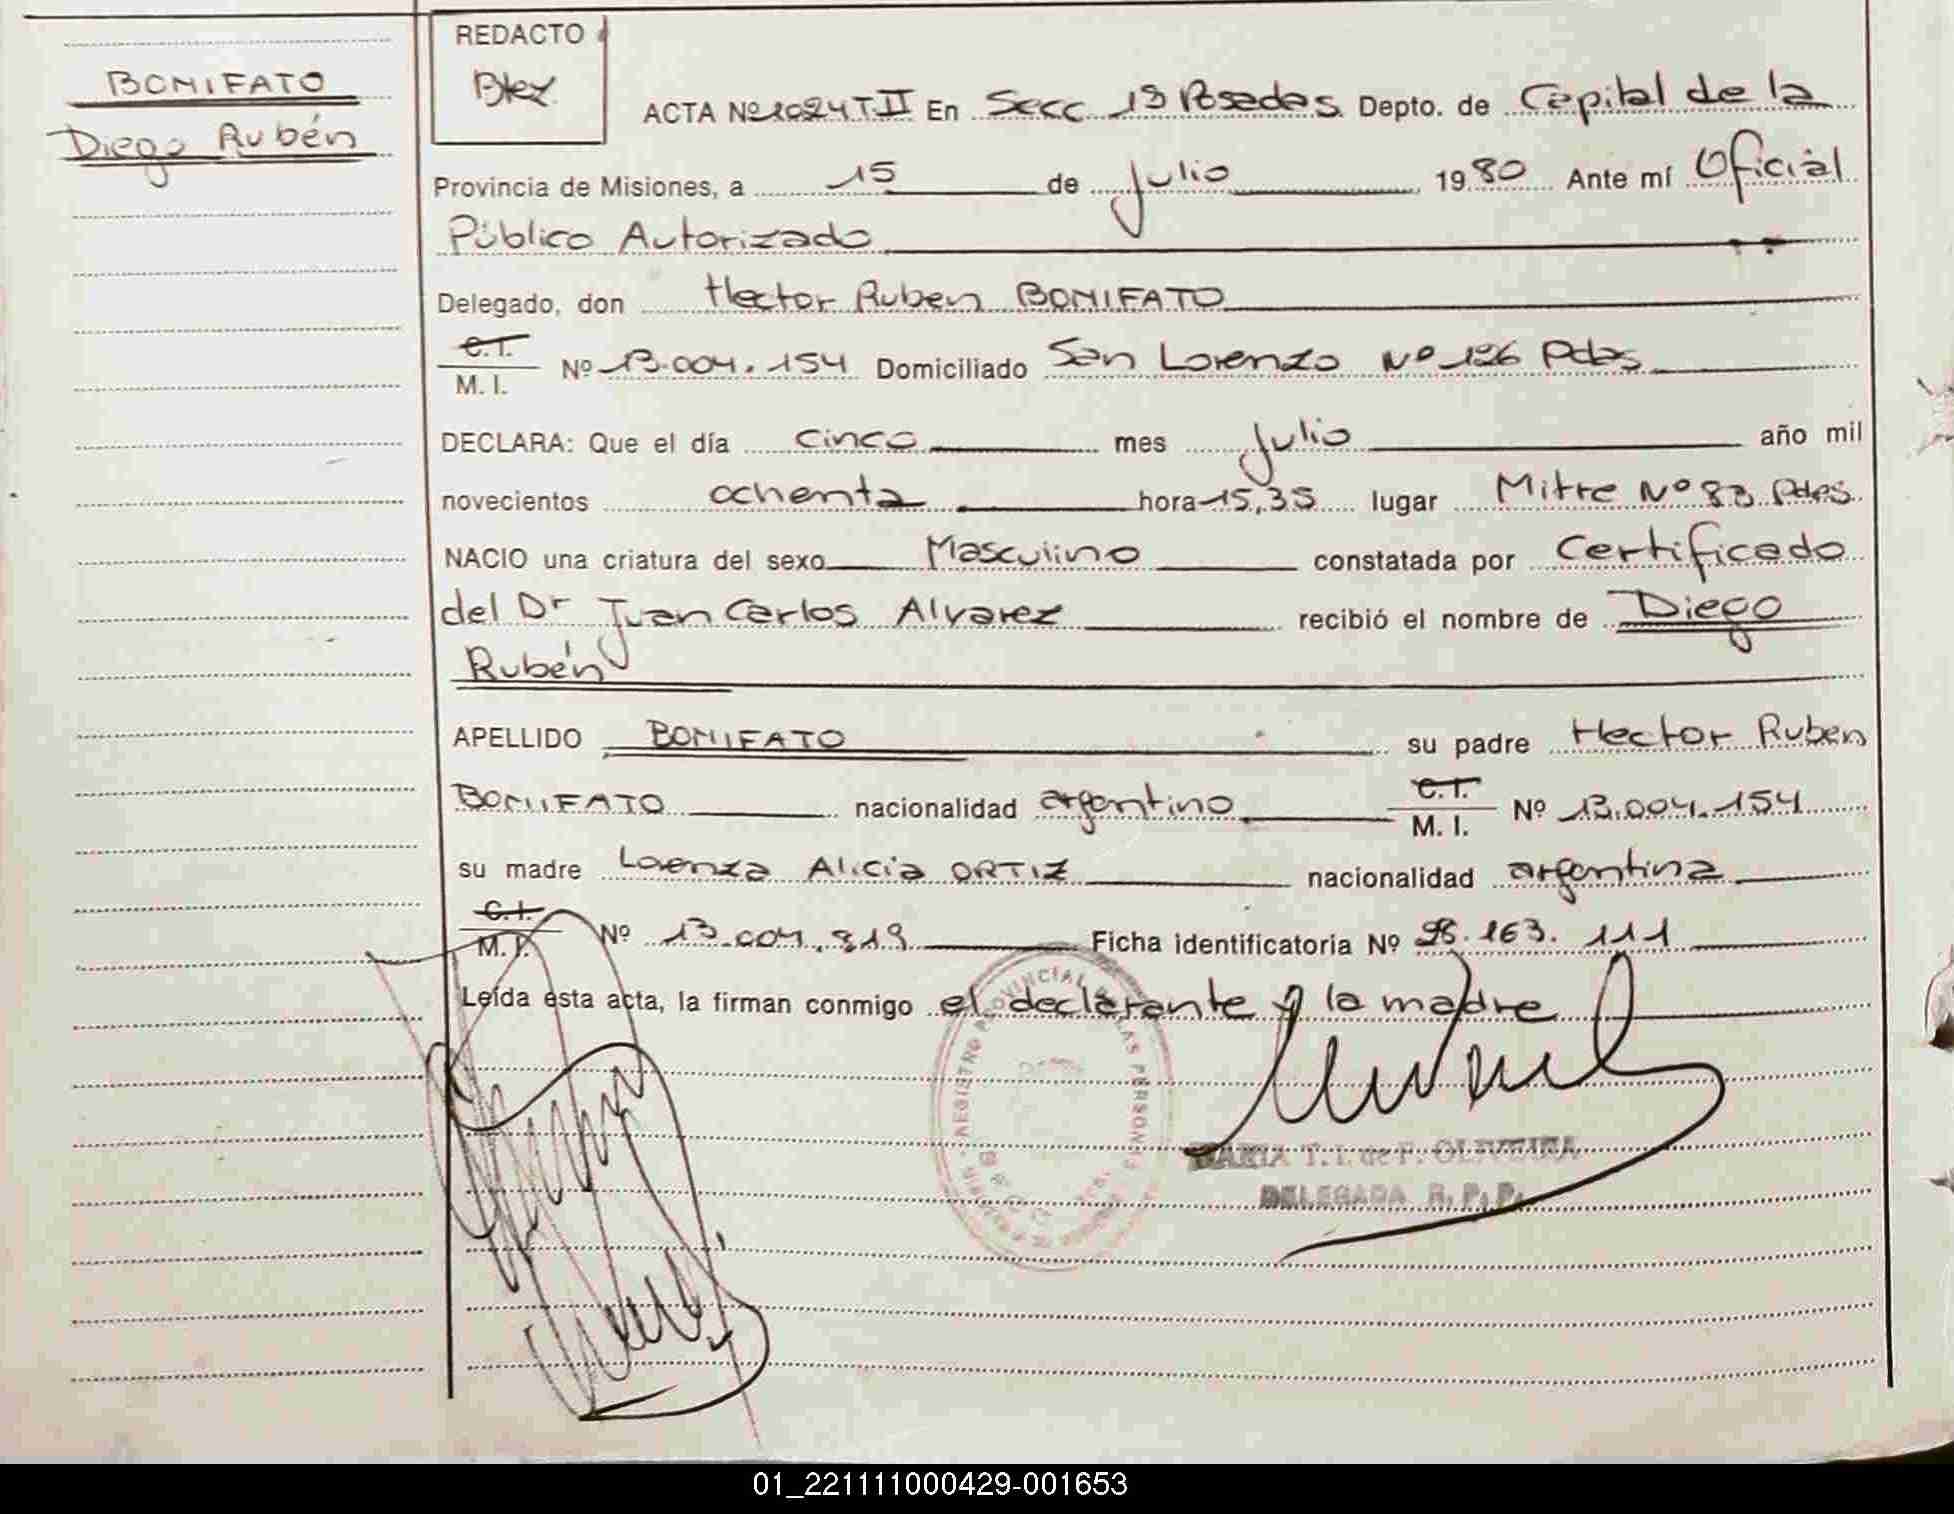 BONIFATO
Diego Rubén
REDACTO
ACTA Nº 1024 T.II En Secc 1ª Posadas Depto. de Capital de la
Provincia de Misiones, a 15 de Julio 1980 Ante mí Oficial
Público Autorizado
Delegado, don Hector Ruben BONIFATO
C.I.
M. I. Nº 13.004.154 Domiciliado San Lorenzo Nº 126 Pdas
DECLARA: Que el día cinco mes Julio año mil
novecientos ochenta hora 15,35 lugar Mitre Nº 83 Pdas
NACIO una criatura del sexo Masculino constatada por Certificado
del Dr Juan Carlos Alvarez recibió el nombre de Diego
Rubén
APELLIDO BONIFATO su padre Hector Ruben
BONIFATO nacionalidad argentino C.I. M. I. Nº 13.004.154
su madre Lorenza Alicia ORTIZ nacionalidad argentina
C.I.
M. I. Nº 13.004.819 Ficha identificatoria Nº 28.163.111
Leída esta acta, la firman conmigo el declarante y la madre
REGISTRO PROVINCIAL DE LAS PERSONAS
MARIA T. I. de F. OLIVEIRA
DELEGADA R. P. P.
01_221111000429-001653